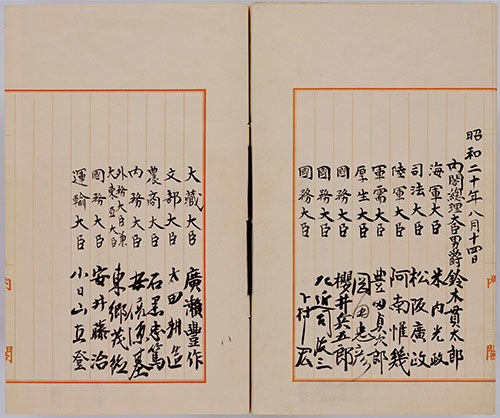 昭和二十年八月十四日
内閣総理大臣男爵 鈴木貫太郎
海軍大臣 米内光政
司法大臣 松阪廣政
陸軍大臣 阿南惟幾
軍需大臣 豊田貞次郎
厚生大臣 岡田忠彦
國務大臣 櫻井兵五郎
國務大臣 左近司政三
國務大臣 下村宏
大藏大臣 廣瀬豊作
文部大臣 太田耕造
農商大臣 石黒忠篤
内務大臣 安倍源基
外務大臣兼
大東亞大臣 東郷茂徳
國務大臣 安井藤治
運輸大臣 小日山直登
内閣
内閣